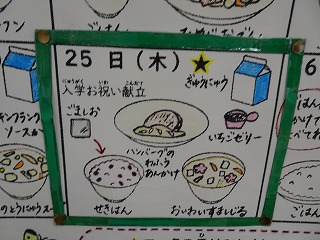 ごはん
25日(木)★
入学お祝い献立
にゅうがく いわ こんだて
ぎゅうにゅう
ごましお
いちごゼリー
ハンバーグの
わふう
あんかけ
せきはん
おいわいすましじる
フランク
ソースか
ごはん